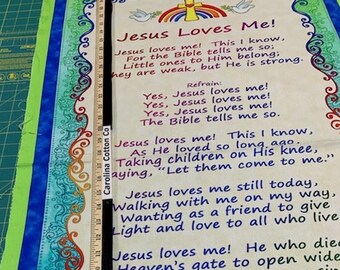 Jesus Loves Me!
Jesus loves me! This I know,
For the Bible tells me so;
Little ones to Him belong.
ey are weak, but He is strong.
Refrain:
Yes, Jesus loves me!
Yes, Jesus loves me!
Yes, Jesus loves me!
The Bible tells me so.
Jesus loves me! This I know,
As He loved so long ago.
Taking children on His knee,
aying, "Let them come to me."
Jesus loves me still today,
Walking with me on my way,
Wanting as a friend to give
Light and love to all who live
Jesus loves me! He who died
Heaven's gate to open wide
Carolina Cotton Co